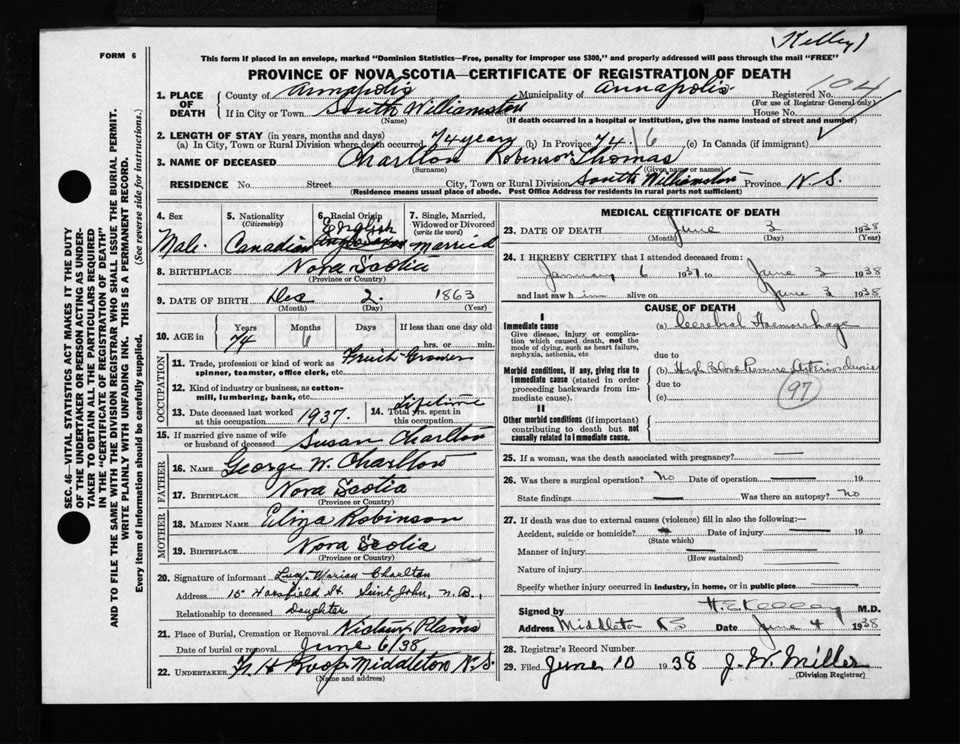 (Kelley)
FORM 6
This form if placed in an envelope, marked "Dominion Statistics—Free, penalty for improper use $300," and properly addressed will pass through the mail "FREE"
PROVINCE OF NOVA SCOTIA—CERTIFICATE OF REGISTRATION OF DEATH
1. PLACE OF DEATH
County of Annapolis Municipality of Annapolis Registered No. 104
(For use of Registrar General only)
If in City or Town South Williamston House No.
(Name) (If death occurred in a hospital or institution, give the name instead of street and number)
2. LENGTH OF STAY (in years, months and days)
(a) In City, Town or Rural Division where death occurred 74 years (b) In Province 74 | 6 (c) In Canada (if immigrant)
3. NAME OF DECEASED Charlton Robinson Thomas
(Surname) (Given name or names)
RESIDENCE No. Street City, Town or Rural Division South Williamston Province N.S.
(Residence means usual place of abode. Post Office Address for residents in rural parts not sufficient)
4. Sex
Male.
5. Nationality
(Citizenship)
Canadian
6. Racial Origin
English
7. Single, Married, Widowed or Divorced
(write the word)
Married
8. BIRTHPLACE Nova Scotia
(Province or Country)
9. DATE OF BIRTH Dec 2. 1863
(Month) (Day) (Year)
10. AGE in
Years Months Days If less than one day old
74 6 hrs. or min.
OCCUPATION
11. Trade, profession or kind of work as Fruit-Grower
spinner, teamster, office clerk, etc.
12. Kind of industry or business, as cotton-
mill, lumbering, bank, etc.
13. Date deceased last worked
at this occupation 1937.
14. Total yrs. spent in
this occupation Lifetime
15. If married give name of wife
or husband of deceased Susan Charlton
FATHER
16. NAME George W. Charlton
17. BIRTHPLACE Nova Scotia
(Province or Country)
MOTHER
18. MAIDEN NAME Eliza Robinson
19. BIRTHPLACE Nova Scotia
(Province or Country)
20. Signature of informant Lucy Marian Charlton
Address 15 Horsfield St. Saint John, N.B.,
Relationship to deceased Daughter
21. Place of Burial, Cremation or Removal Nictaux Plains
Date of burial or removal June 6/38
22. UNDERTAKER H Roop Middleton N.S.
(Name and address)
MEDICAL CERTIFICATE OF DEATH
23. DATE OF DEATH June 3 1938
(Month) (Day) (Year)
24. I HEREBY CERTIFY that I attended deceased from:
January 6 1937 to June 3 1938
and last saw him alive on June 3 1938
CAUSE OF DEATH
I
Immediate cause
Give disease, injury or complication which caused death, not the mode of dying, such as heart failure, asphyxia, asthenia, etc
(a) Cerebral Haemorrhage
due to
Morbid conditions, if any, giving rise to immediate cause (stated in order proceeding backwards from immediate cause).
(b) High Blood Pressure Arteriosclerosis
due to
(c)
97
II
Other morbid conditions (if important) contributing to death but not causally related to immediate cause.
25. If a woman, was the death associated with pregnancy? —
26. Was there a surgical operation? No Date of operation — 19
State findings — Was there an autopsy? No
27. If death was due to external causes (violence) fill in also the following:—
Accident, suicide or homicide? Date of injury — 19
(State which)
Manner of injury —
(How sustained)
Nature of injury
Specify whether injury occurred in industry, in home, or in public place —
Signed by H. E. Kelley M.D.
Address Middleton NS Date June 4 1938
28. Registrar's Record Number
29. Filed June 10 1938 J. W. Miller
(Division Registrar)
SEC. 46—VITAL STATISTICS ACT MAKES IT THE DUTY
OF THE UNDERTAKER OR PERSON ACTING AS UNDER-
TAKER TO OBTAIN ALL THE PARTICULARS REQUIRED
IN THE "CERTIFICATE OF REGISTRATION OF DEATH"
AND TO FILE THE SAME WITH THE DIVISION REGISTRAR WHO SHALL ISSUE THE BURIAL PERMIT.
WRITE PLAINLY WITH UNFADING INK. THIS IS A PERMANENT RECORD.
Every item of information should be carefully supplied. (See reverse side for instructions.)